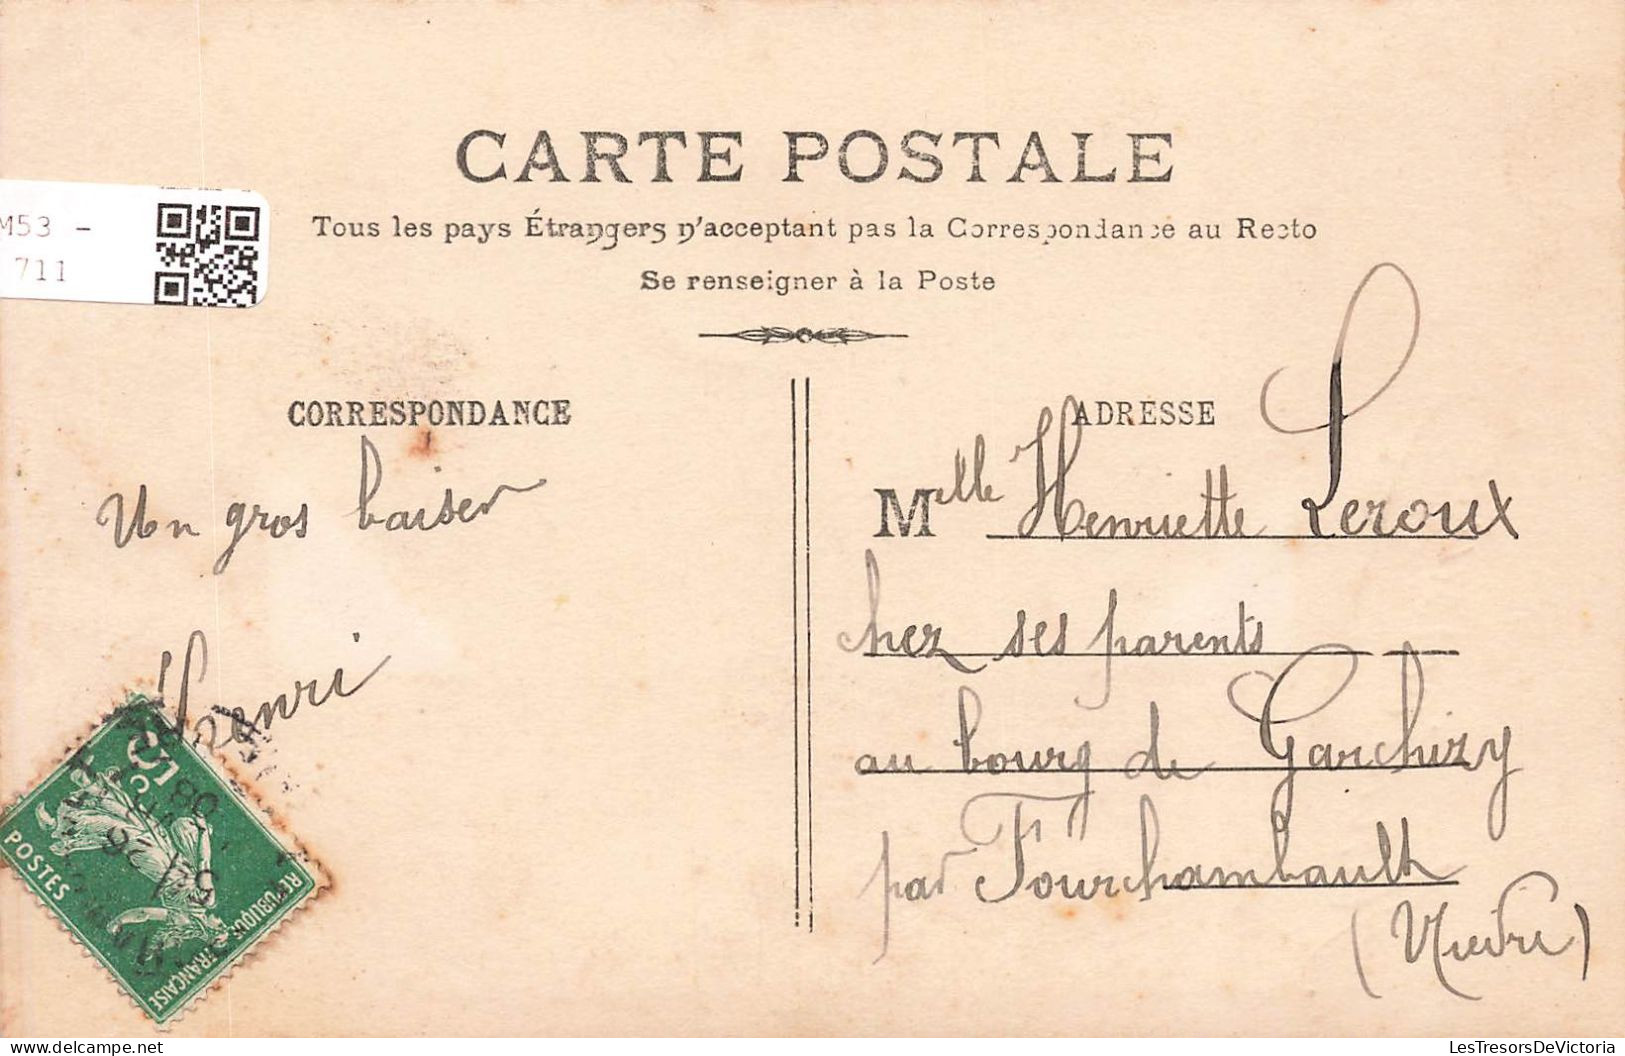 CARTE POSTALE
Tous les pays Étrangers n'acceptant pas la Correspondance au Recto
Se renseigner à la Poste
M53 -
711
CORRESPONDANCE
Un gros baiser
Henri
ADRESSE
Melle Henriette Leroux
chez ses parents
au bourg de Garchizy
par Fourchambault
(Nièvre)
5c
POSTES
REPUBLIQUE FRANÇAISE
LesTresorsDeVictoria